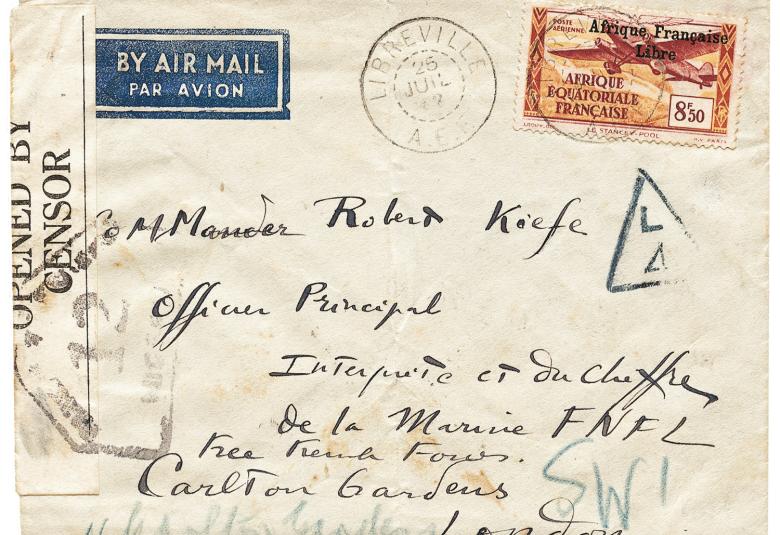 BY AIR MAIL
PAR AVION
LIBREVILLE
25
JUIL
42
A.E.F
POSTE AÉRIENNE
Afrique Française
Libre
AFRIQUE
ÉQUATORIALE
FRANÇAISE
8F50
LE STANLEY-POOL
OPENED BY
CENSOR
12
L
A
Robert Kiefe
Officier Principal
Interprète et du Chiffre
de la Marine FNFL
Free French Forces.
Carlton Gardens
London
SW1
4 Carlton Gardens